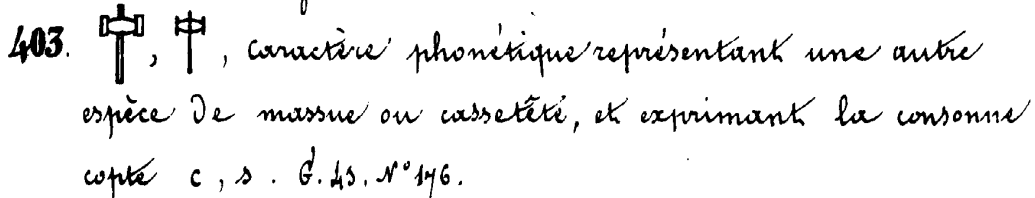 403. 𓌉, 𓌉, caractère phonétique représentant une autre
espèce de massue ou cassetêté, et exprimant la consonne
copte c, s. G. 43. N° 176.